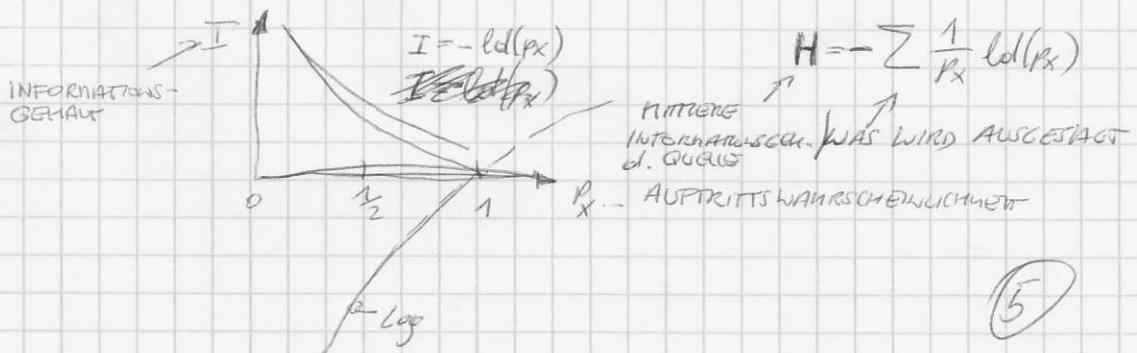 I
I = - ld(px)
INFORMATIONS-
GEHALT
H = - Σ 1/px ld(px)
MITTLERE
INFORMATIONSGEH.
d. QUELLE
WAS WIRD AUSGESAGT
0
1/2
1
Px ... AUFTRITTSWAHRSCHEINLICHKEIT
Log
5